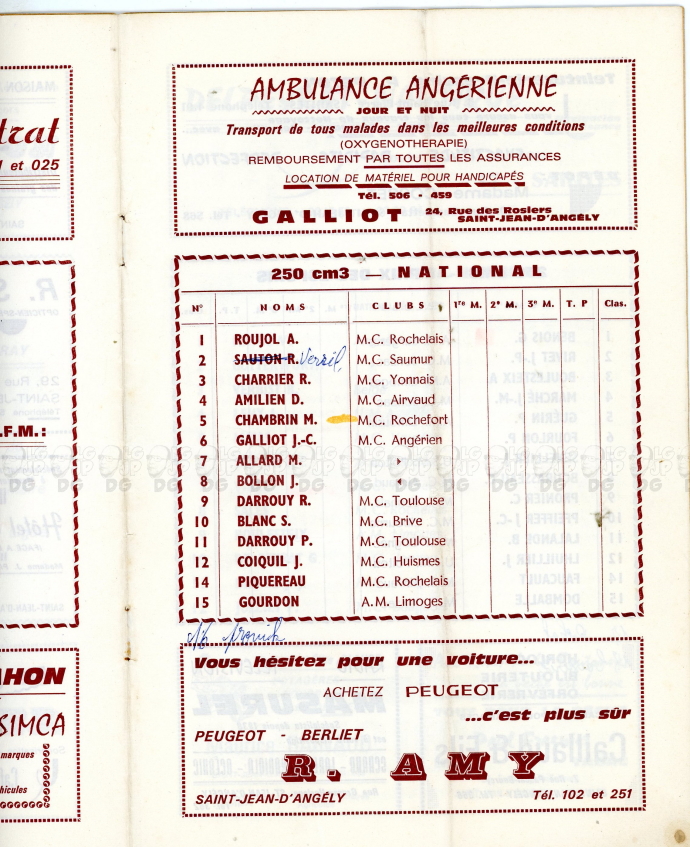 trat
et 025
.F.M.:
AHON
SIMCA
marques
hicules
AMBULANCE ANGÉRIENNE
JOUR ET NUIT
Transport de tous malades dans les meilleures conditions
(OXYGENOTHERAPIE)
REMBOURSEMENT PAR TOUTES LES ASSURANCES
LOCATION DE MATÉRIEL POUR HANDICAPÉS
Tél. 506 - 459
GALLIOT 24, Rue des Rosiers
SAINT-JEAN-D'ANGÉLY
250 cm3 — NATIONAL
N° NOMS CLUBS 1re M. 2e M. 3e M. T. P Clas.
1 ROUJOL A. M.C. Rochelais
2 SAUTON R. M.C. Saumur
3 CHARRIER R. M.C. Yonnais
4 AMILIEN D. M.C. Airvaud
5 CHAMBRIN M. M.C. Rochefort
6 GALLIOT J.-C. M.C. Angérien
7 ALLARD M.
8 BOLLON J.
9 DARROUY R. M.C. Toulouse
10 BLANC S. M.C. Brive
11 DARROUY P. M.C. Toulouse
12 COIQUIL J. M.C. Huismes
14 PIQUEREAU M.C. Rochelais
15 GOURDON A.M. Limoges
16
Vous hésitez pour une voiture...
ACHETEZ PEUGEOT
...c'est plus sûr
PEUGEOT - BERLIET
R. AMY
SAINT-JEAN-D'ANGÉLY Tél. 102 et 251